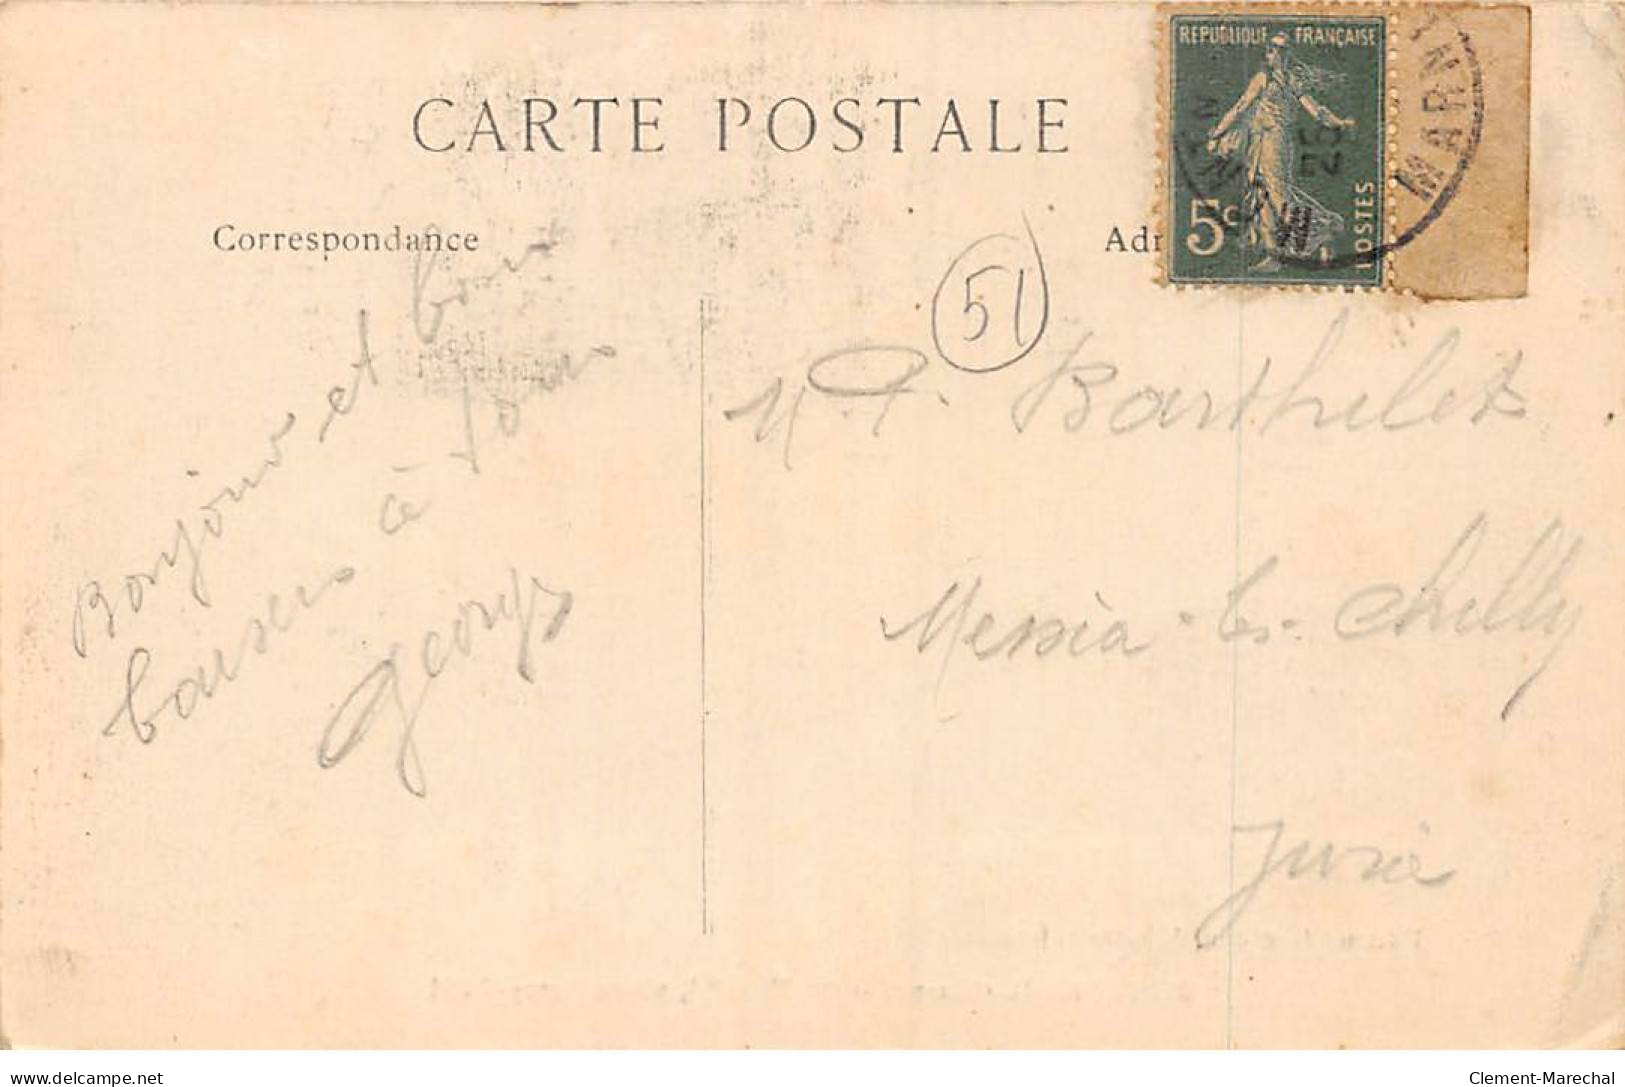 CARTE POSTALE
REPUBLIQUE FRANÇAISE
5c
POSTES
25
MARN
Correspondance
Adr
51
Bonjour et bons
baisers à tous
Georges
Barthelet
Messia-les-Chilly
Jura
delcampe.net
Clement-Marechal